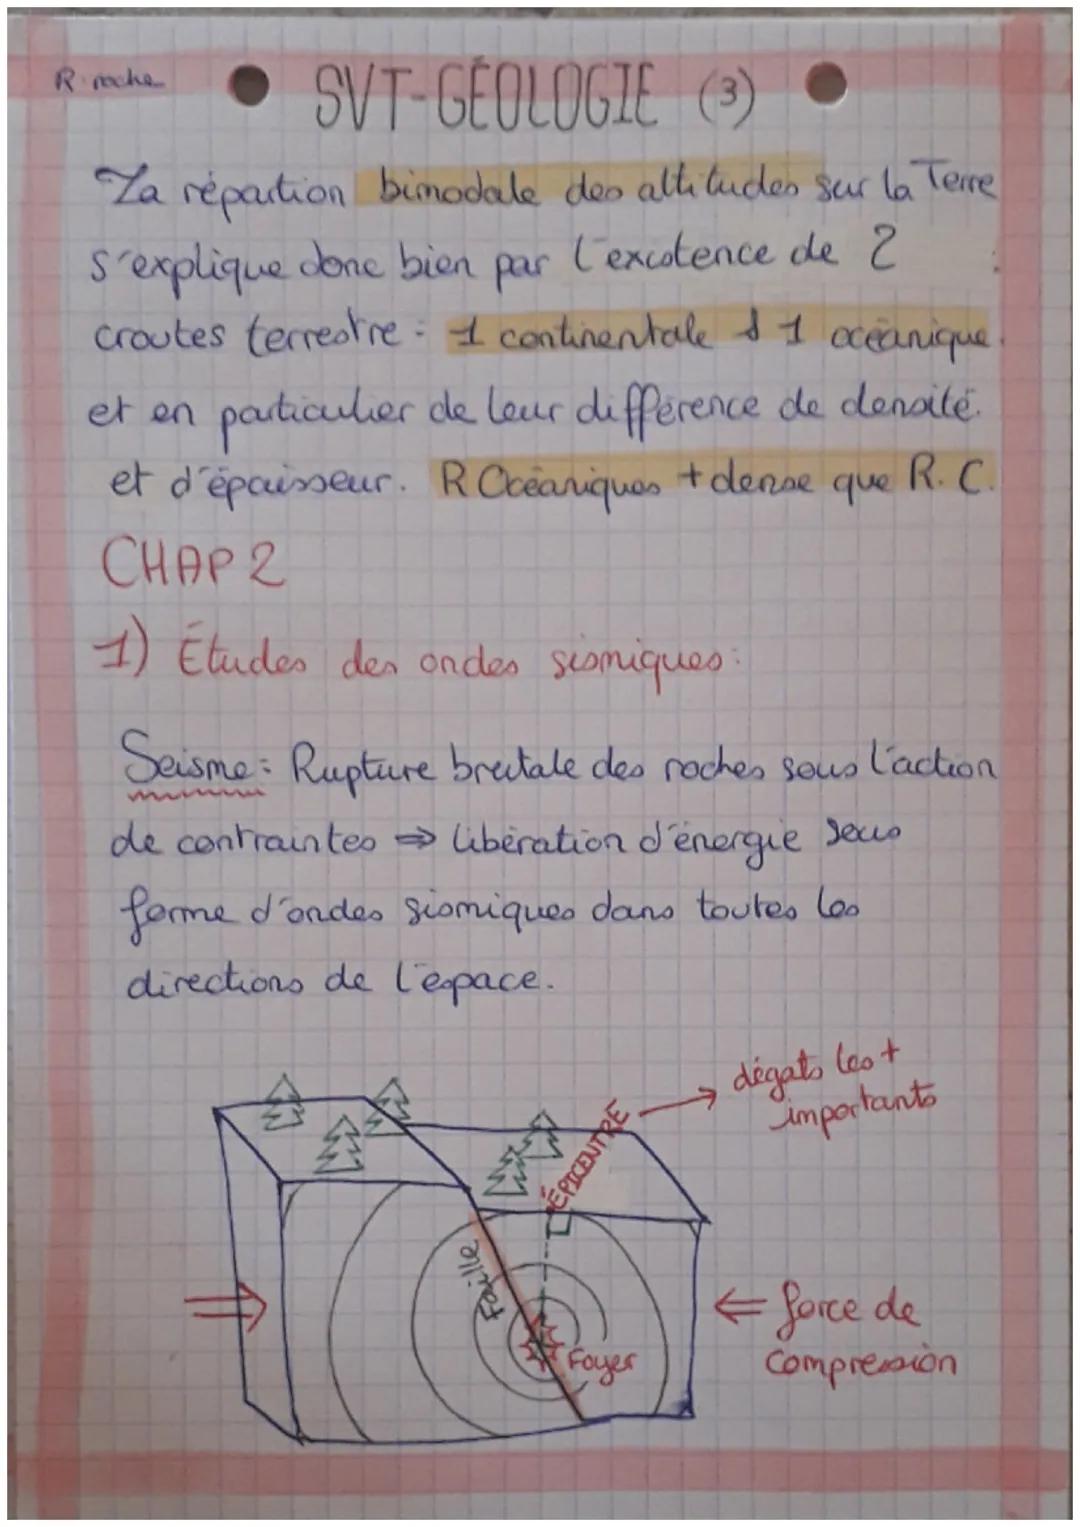 R: roche
SVT-GÉOLOGIE (3)
La répartion bimodale des altitudes sur la Terre
s'explique donc bien par l'existence de 2
croutes terrestre : 1 continentale & 1 océanique
et en particulier de leur différence de densité.
et d'épaisseur. R Océaniques + dense que R. C.
CHAP 2
1) Études des ondes sismiques :
Seisme : Rupture brutale des roches sous l'action
de contraintes ⇒ libération d'énergie sous
forme d'ondes sismiques dans toutes les
directions de l'espace.
dégats les +
importants
ÉPICENTRE
Faille
Foyer
⇐ force de
compression